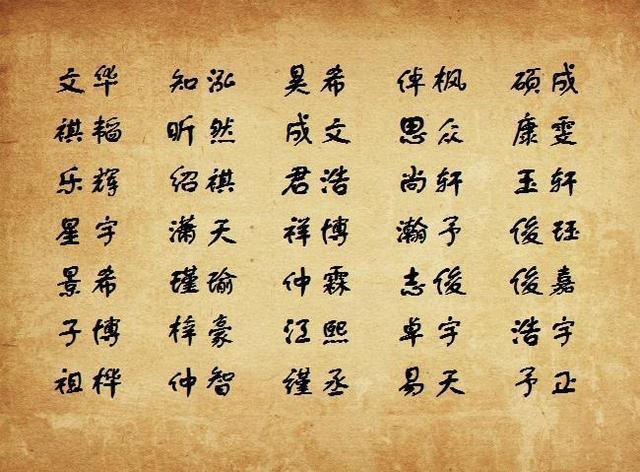 文华 知泓 昊希 倬枫 硕成
祺韬 昕然 成文 思众 康雯
乐辉 绍祺 君浩 尚轩 玉轩
星宇 潇天 祥博 瀚予 俊珏
景希 瑾瑜 仲霖 志俊 俊嘉
子博 梓豪 江熙 卓宇 浩宇
祖桦 仲智 瑾丞 易天 予正